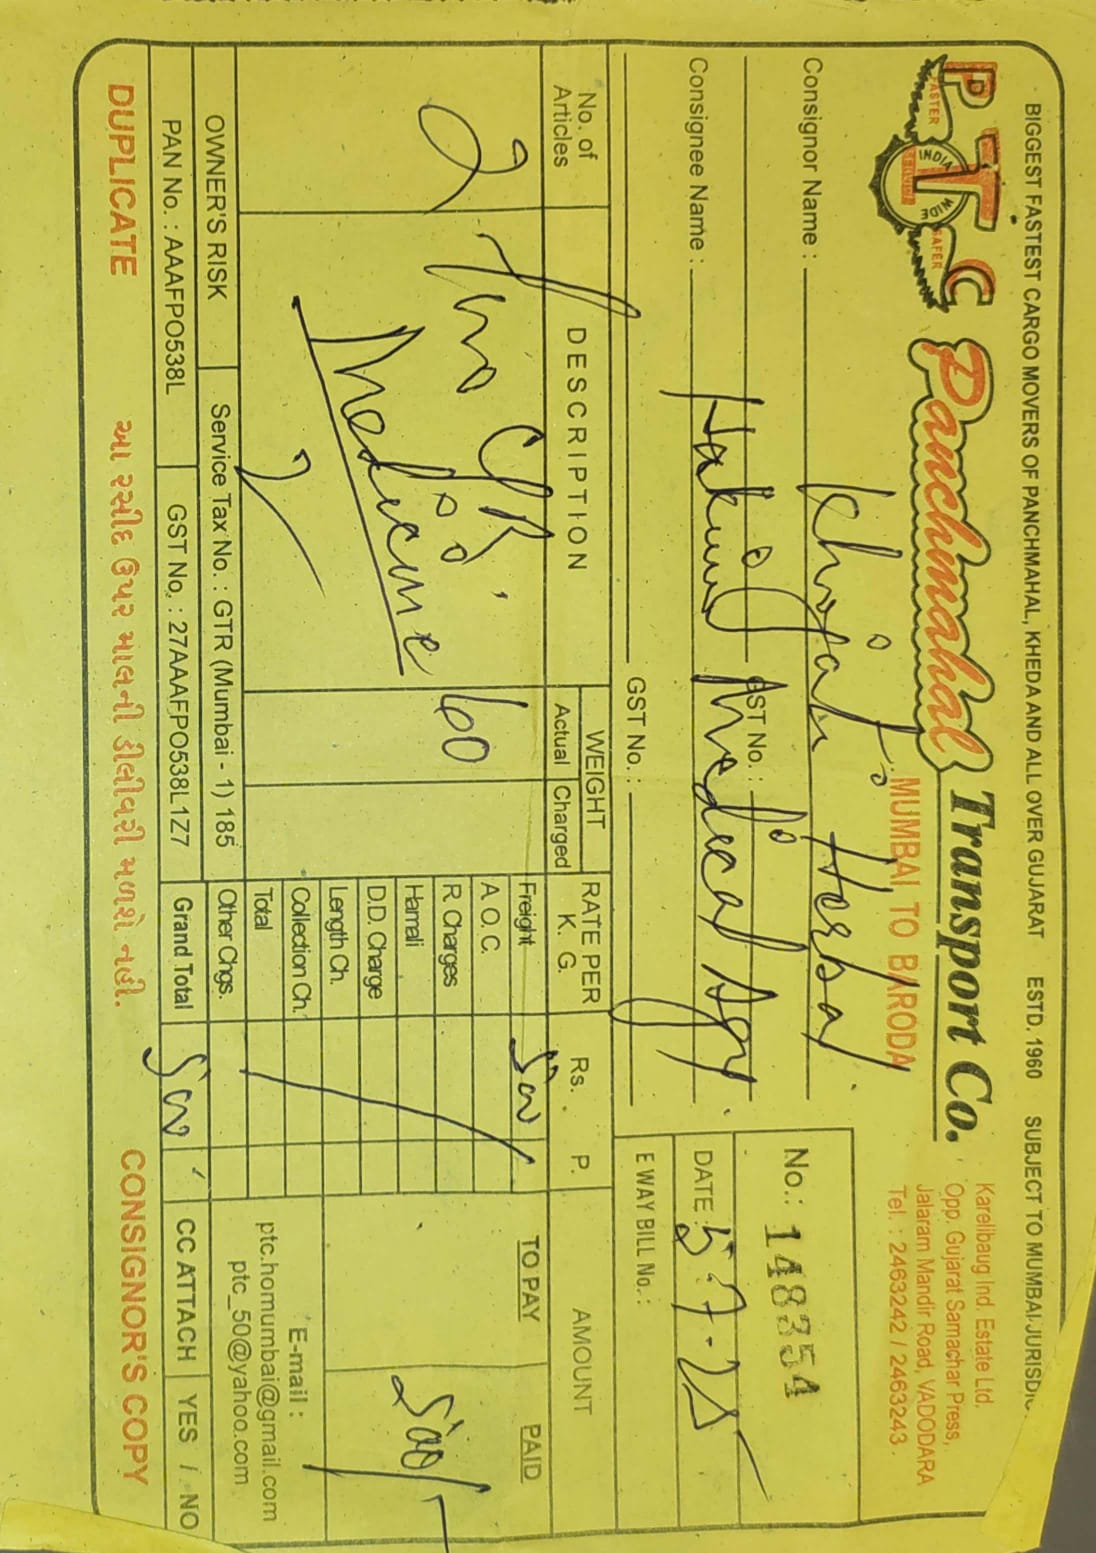 BIGGEST FASTEST CARGO MOVERS OF PANCHMAHAL, KHEDA AND ALL OVER GUJARAT ESTD. 1960 SUBJECT TO MUMBAI JURISDIC
PTC
FASTER INDIA WIDE SAFER
Panchmahal Transport Co.
MUMBAI TO BARODA
Karelibaug Ind. Estate Ltd.
Opp. Gujarat Samachar Press,
Jalaram Mandir Road, VADODARA
Tel. : 2463242 / 2463243
Consignor Name : Herbal
GST No. :
Consignee Name : Medical Agy.
GST No. :
No.: 148354
DATE : 5-7-25
E WAY BILL No. :
No. of Articles
DESCRIPTION
WEIGHT
Actual Charged
RATE PER K. G.
Rs. P.
AMOUNT
TO PAY PAID
2
Two
Medicine
60
Freight 500
A.O.C.
R. Charges
Hamali
D.D. Charge
Length Ch.
Collection Ch.
Total
Other Chgs.
Grand Total 500
500/-
E-mail :
ptc.homumbai@gmail.com
ptc_50@yahoo.com
OWNER'S RISK
Service Tax No. : GTR (Mumbai - 1) 185
PAN No. : AAAFPO538L
GST No. : 27AAAFPO538L1Z7
CC ATTACH YES / NO
DUPLICATE
આ રસીદ ઉપર માલની ડીલીવરી મળશે નહી.
CONSIGNOR'S COPY